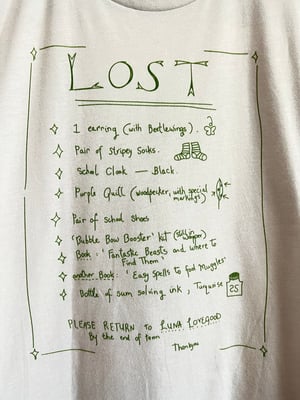 LOST
1 earring (with Beetlewings).
Pair of Stripey Socks.
School Cloak — Black.
Purple Quill (woodpecker, with special
markings)
Pair of school shoes
'Bubble Bow Booster' kit (Still in
wrapper)
Book: 'Fantastic Beasts and where to
Find Them'
another Book: 'Easy Spells to fool Muggles'
Bottle of sum solving ink, Turquoise
25
PLEASE RETURN to LUNA LOVEGOOD
By the end of term
Thankyou